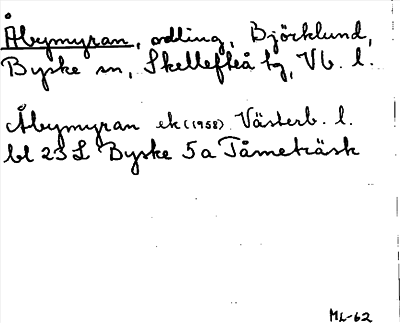 Åbymyran, odling, Björklund,
Byske sn, Skellefteå tg, Vb. l.
Åbymyran ek (1958) Västerb. l.
bl 23 L Byske 5a Tåmeträsk
ML-62